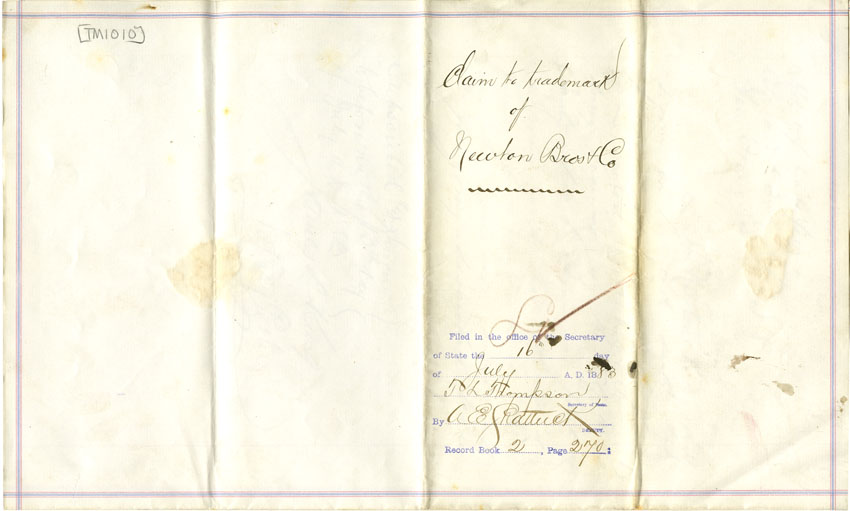 [TM1010]
Claim to trademark
of
Newton Bros & Co
Filed in the office of the Secretary
of State the 16 day
of July A.D. 18
T L Thompson
Secretary of State.
By A E Shattuck
DEPUTY.
Record Book 2, Page 270